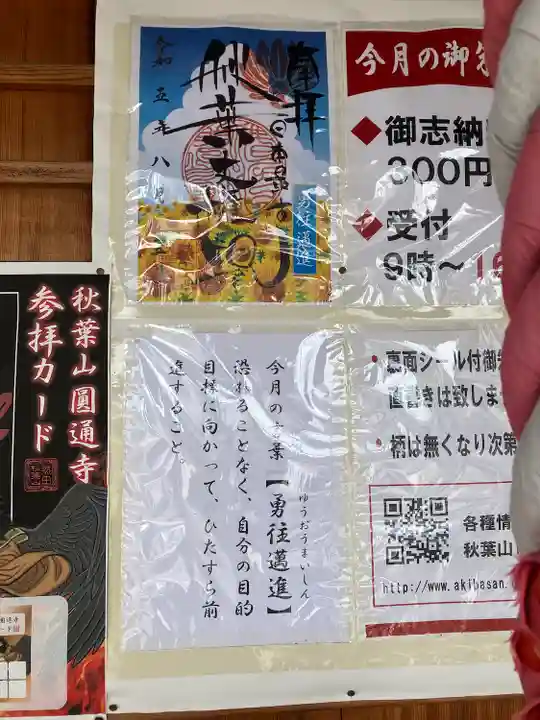 奉拝
秋葉
令和五年八月
勇往邁進
今月の御朱
◆御志納
300円
◆受付
9時〜
秋葉山圓通寺
参拝カード
今月の言葉【勇往邁進】
ゆうおうまいしん
恐れることなく、自分の目的
目標に向かって、ひたすら前
進すること。
・裏面シール付御朱
直書きは致しま
・柄は無くなり次第
各種情
秋葉山
http://www.akibasan.